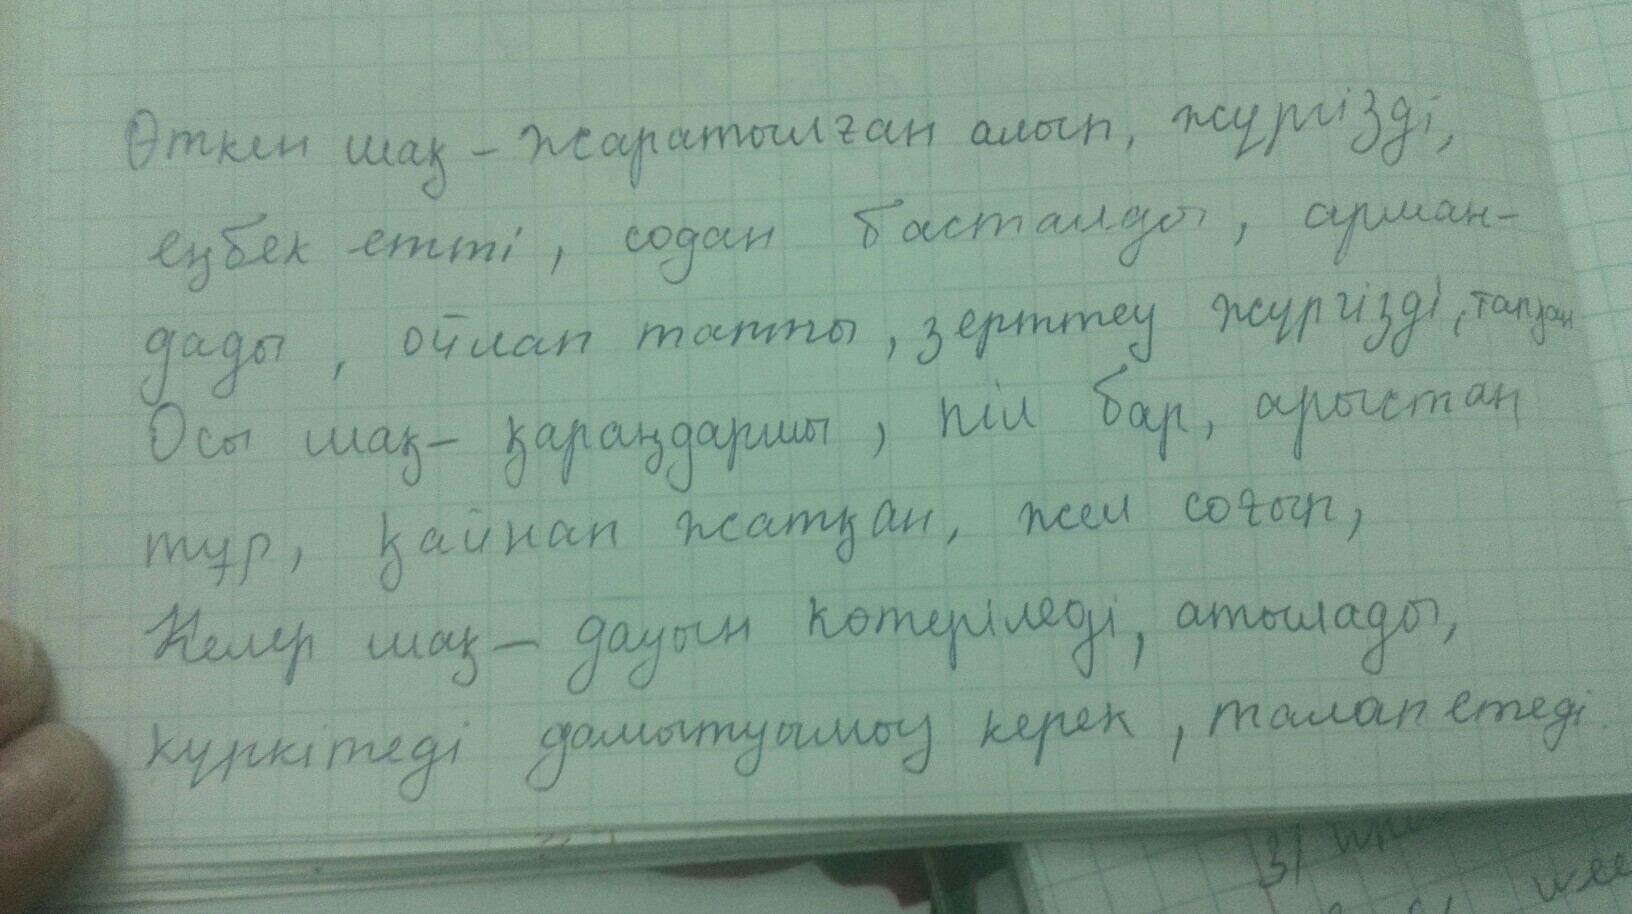 Өткен шақ – жаратылған алып, жүргізді,
еңбек етті, содан басталды, арман-
дады, ойлап тапты, зерттеу жүргізді, тапқан
Осы шақ – қараңдаршы, піл бар, арыстан
тұр, қайнап жатқан, жел соғып,
Келер шақ – дауын көтеріледі, атылады,
күркітеді дамытуымыз керек, талап етеді.
3)